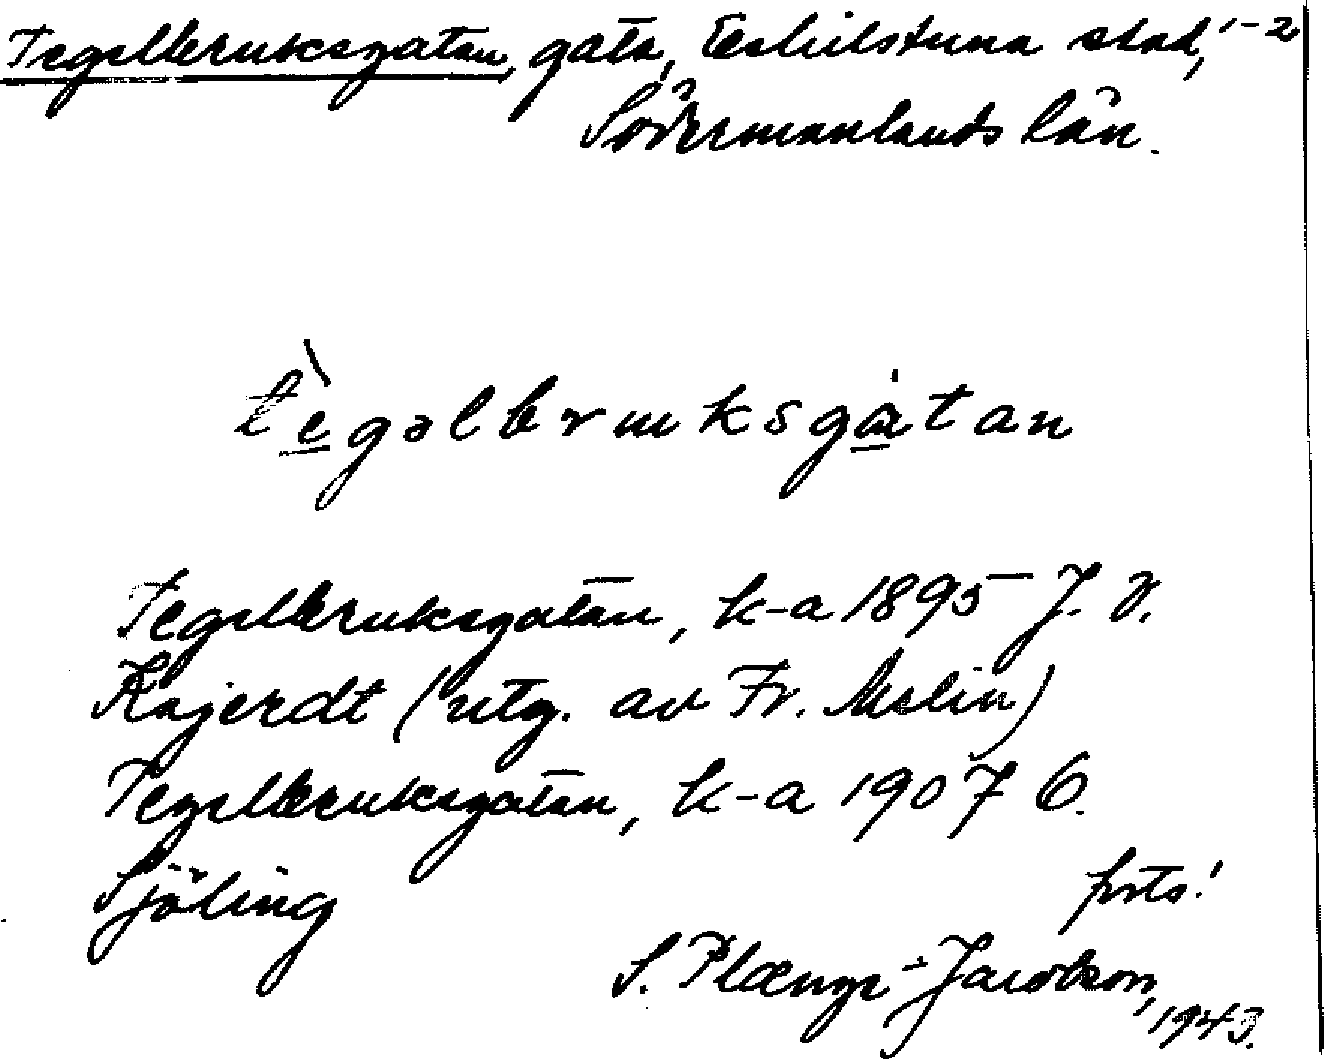 Tegelbruksgatan, gata, Eskilstuna stad, 1-2
Södermanlands län.
tègəlbruksgàtan
Tegelbruksgatan, k-a 1895 J. V.
Kajerdt (utg. av Fr. Melin)
Tegelbruksgatan, k-a 1907 O.
Sjöling
forts!
S. Plænge-Jacobson,
1943.